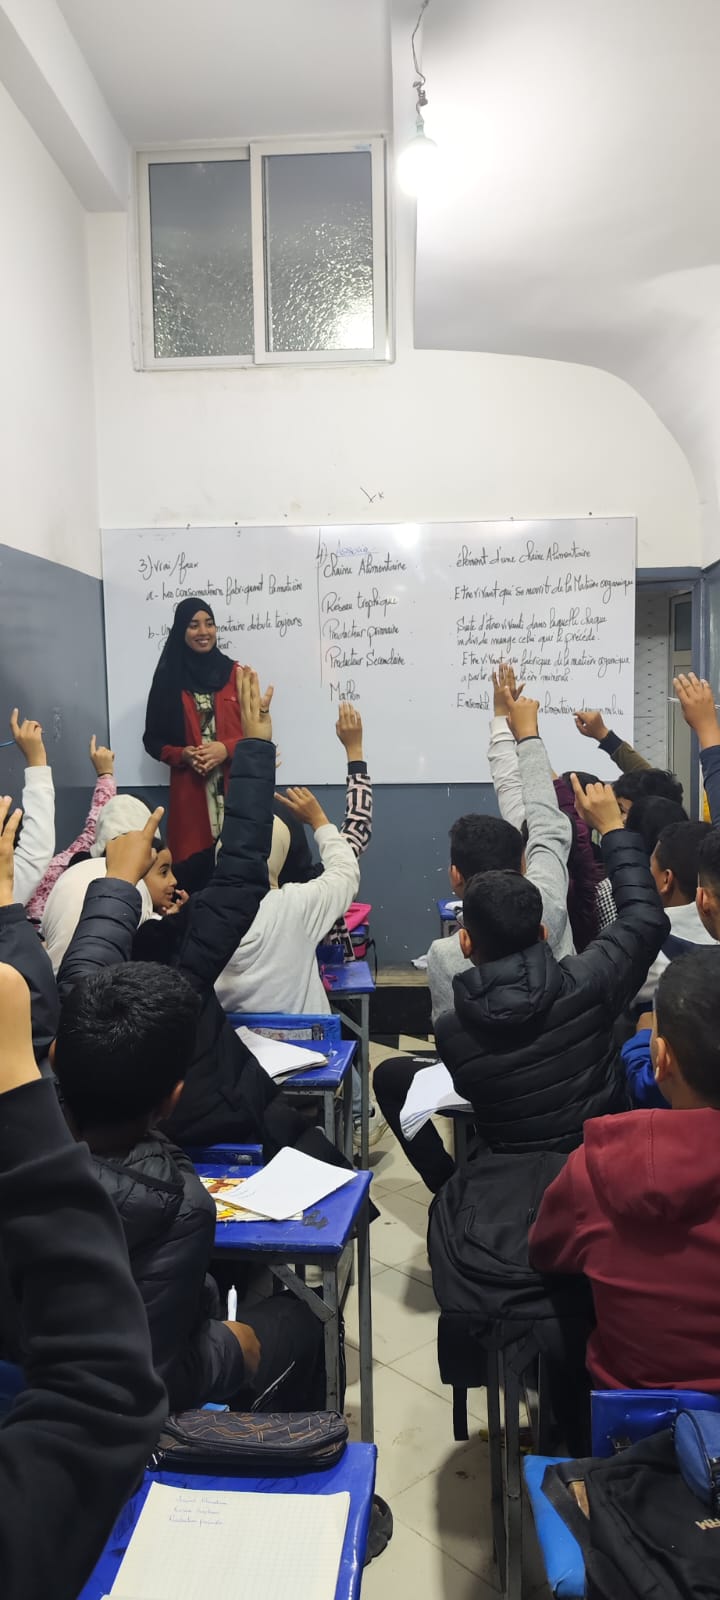 3) vrai/faux
a- Les consommateurs fabriquent la matière
b- Un
mentaire débute toujours
teur.
4)
Chaîne Alimentaire
Réseau trophique
Producteur primaire
Producteur Secondaire
. élément d'une chaîne Alimentaire
. Etre vivant qui se nourrit de la Matière organique
. Suite d'êtres vivants dans laquelle chaque
individu mange celui qui le précède.
. Etre vivant qui fabrique de la matière organique
a partir
matière minérale.
. Ensemble
alimentaire
milieu